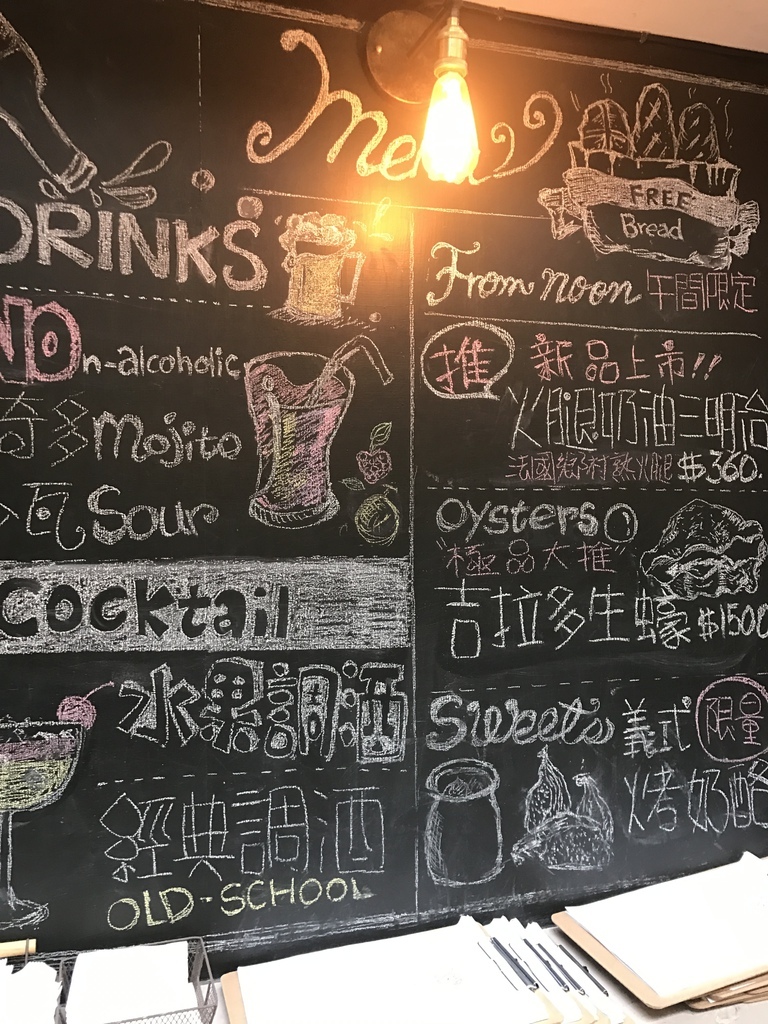 Menu
DRINKS
NOn-alcoholic
奇多Mojito
瓦Sour
Cocktail
水果調酒
經典調酒
OLD-SCHOOL
FREE
Bread
From noon 午間限定
推 新品上市!!
火腿奶油三明治
法國鄉村熟火腿 $360.
Oysters
"極品大推"
吉拉多生蠔 $1500
Sweets 義式 限量
烤奶酪